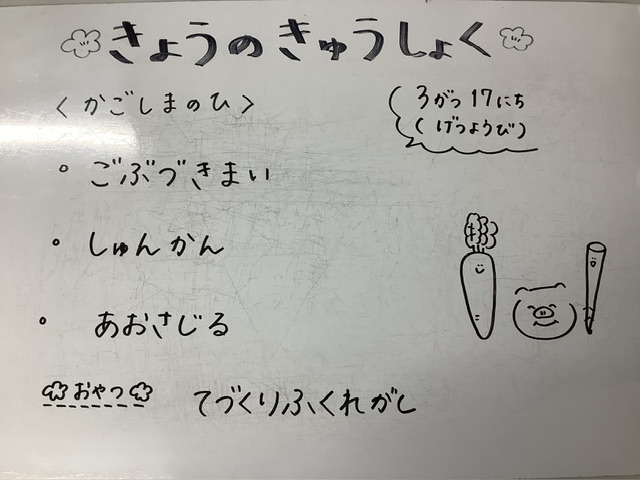 きょうのきゅうしょく
〈かごしまのひ〉
3がつ17にち
(げつようび)
。ごぶづきまい
。しゅんかん
。あおさじる
おやつ てづくりふくれがし